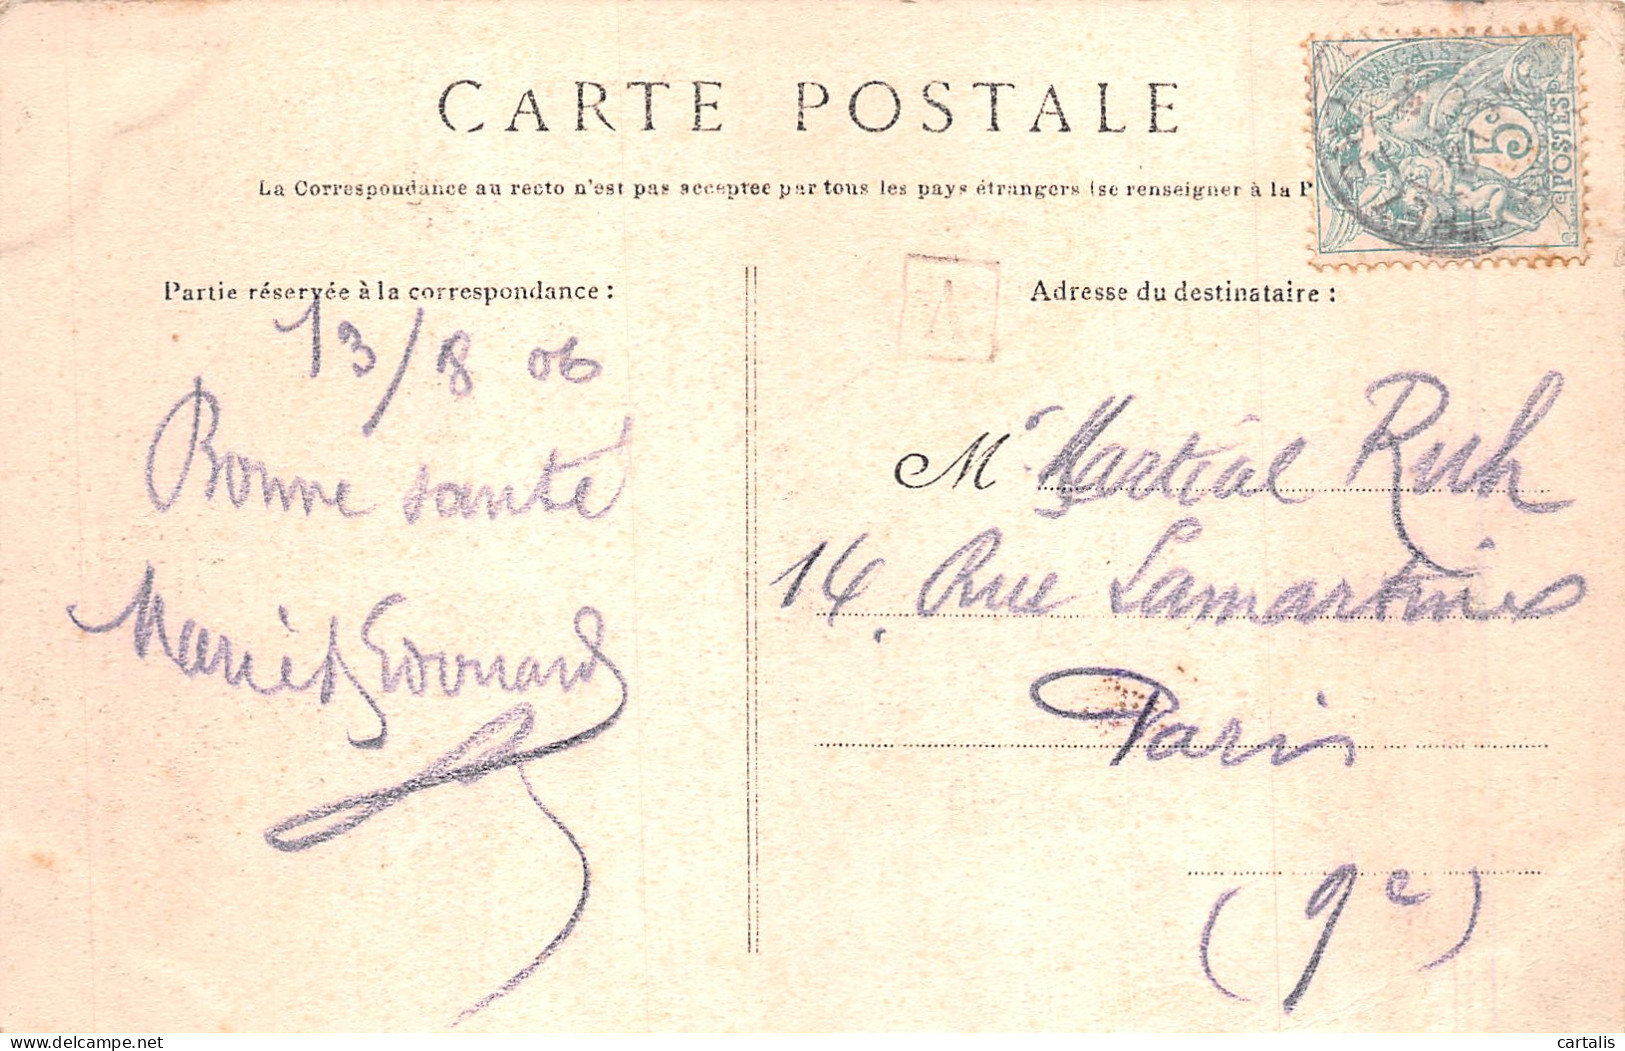 CARTE POSTALE
La Correspondance au recto n'est pas acceptée par tous les pays étrangers (se renseigner à la P
FRANÇAISE
5c
POSTES
Partie réservée à la correspondance :
13/8 06
Bonne santé
Edouard
A
Adresse du destinataire :
Mr Martial Ruh
14, Rue Lamartine
Paris
(9e)
cartalis